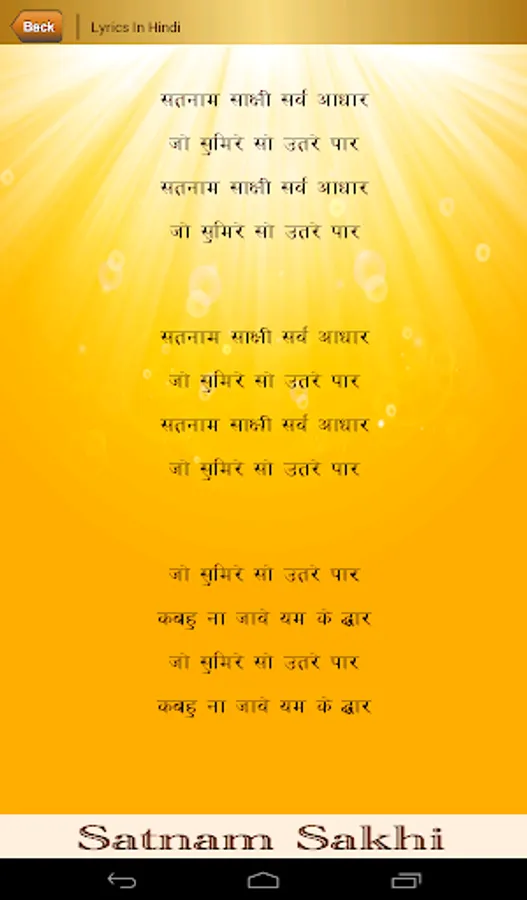 Back
Lyrics In Hindi
सतनाम साक्षी सर्व आधार
जो सुमिरे सो उतरे पार
सतनाम साक्षी सर्व आधार
जो सुमिरे सो उतरे पार
सतनाम साक्षी सर्व आधार
जो सुमिरे सो उतरे पार
सतनाम साक्षी सर्व आधार
जो सुमिरे सो उतरे पार
जो सुमिरे सो उतरे पार
कबहु ना जावे यम के द्वार
जो सुमिरे सो उतरे पार
कबहु ना जावे यम के द्वार
Satnam Sakhi